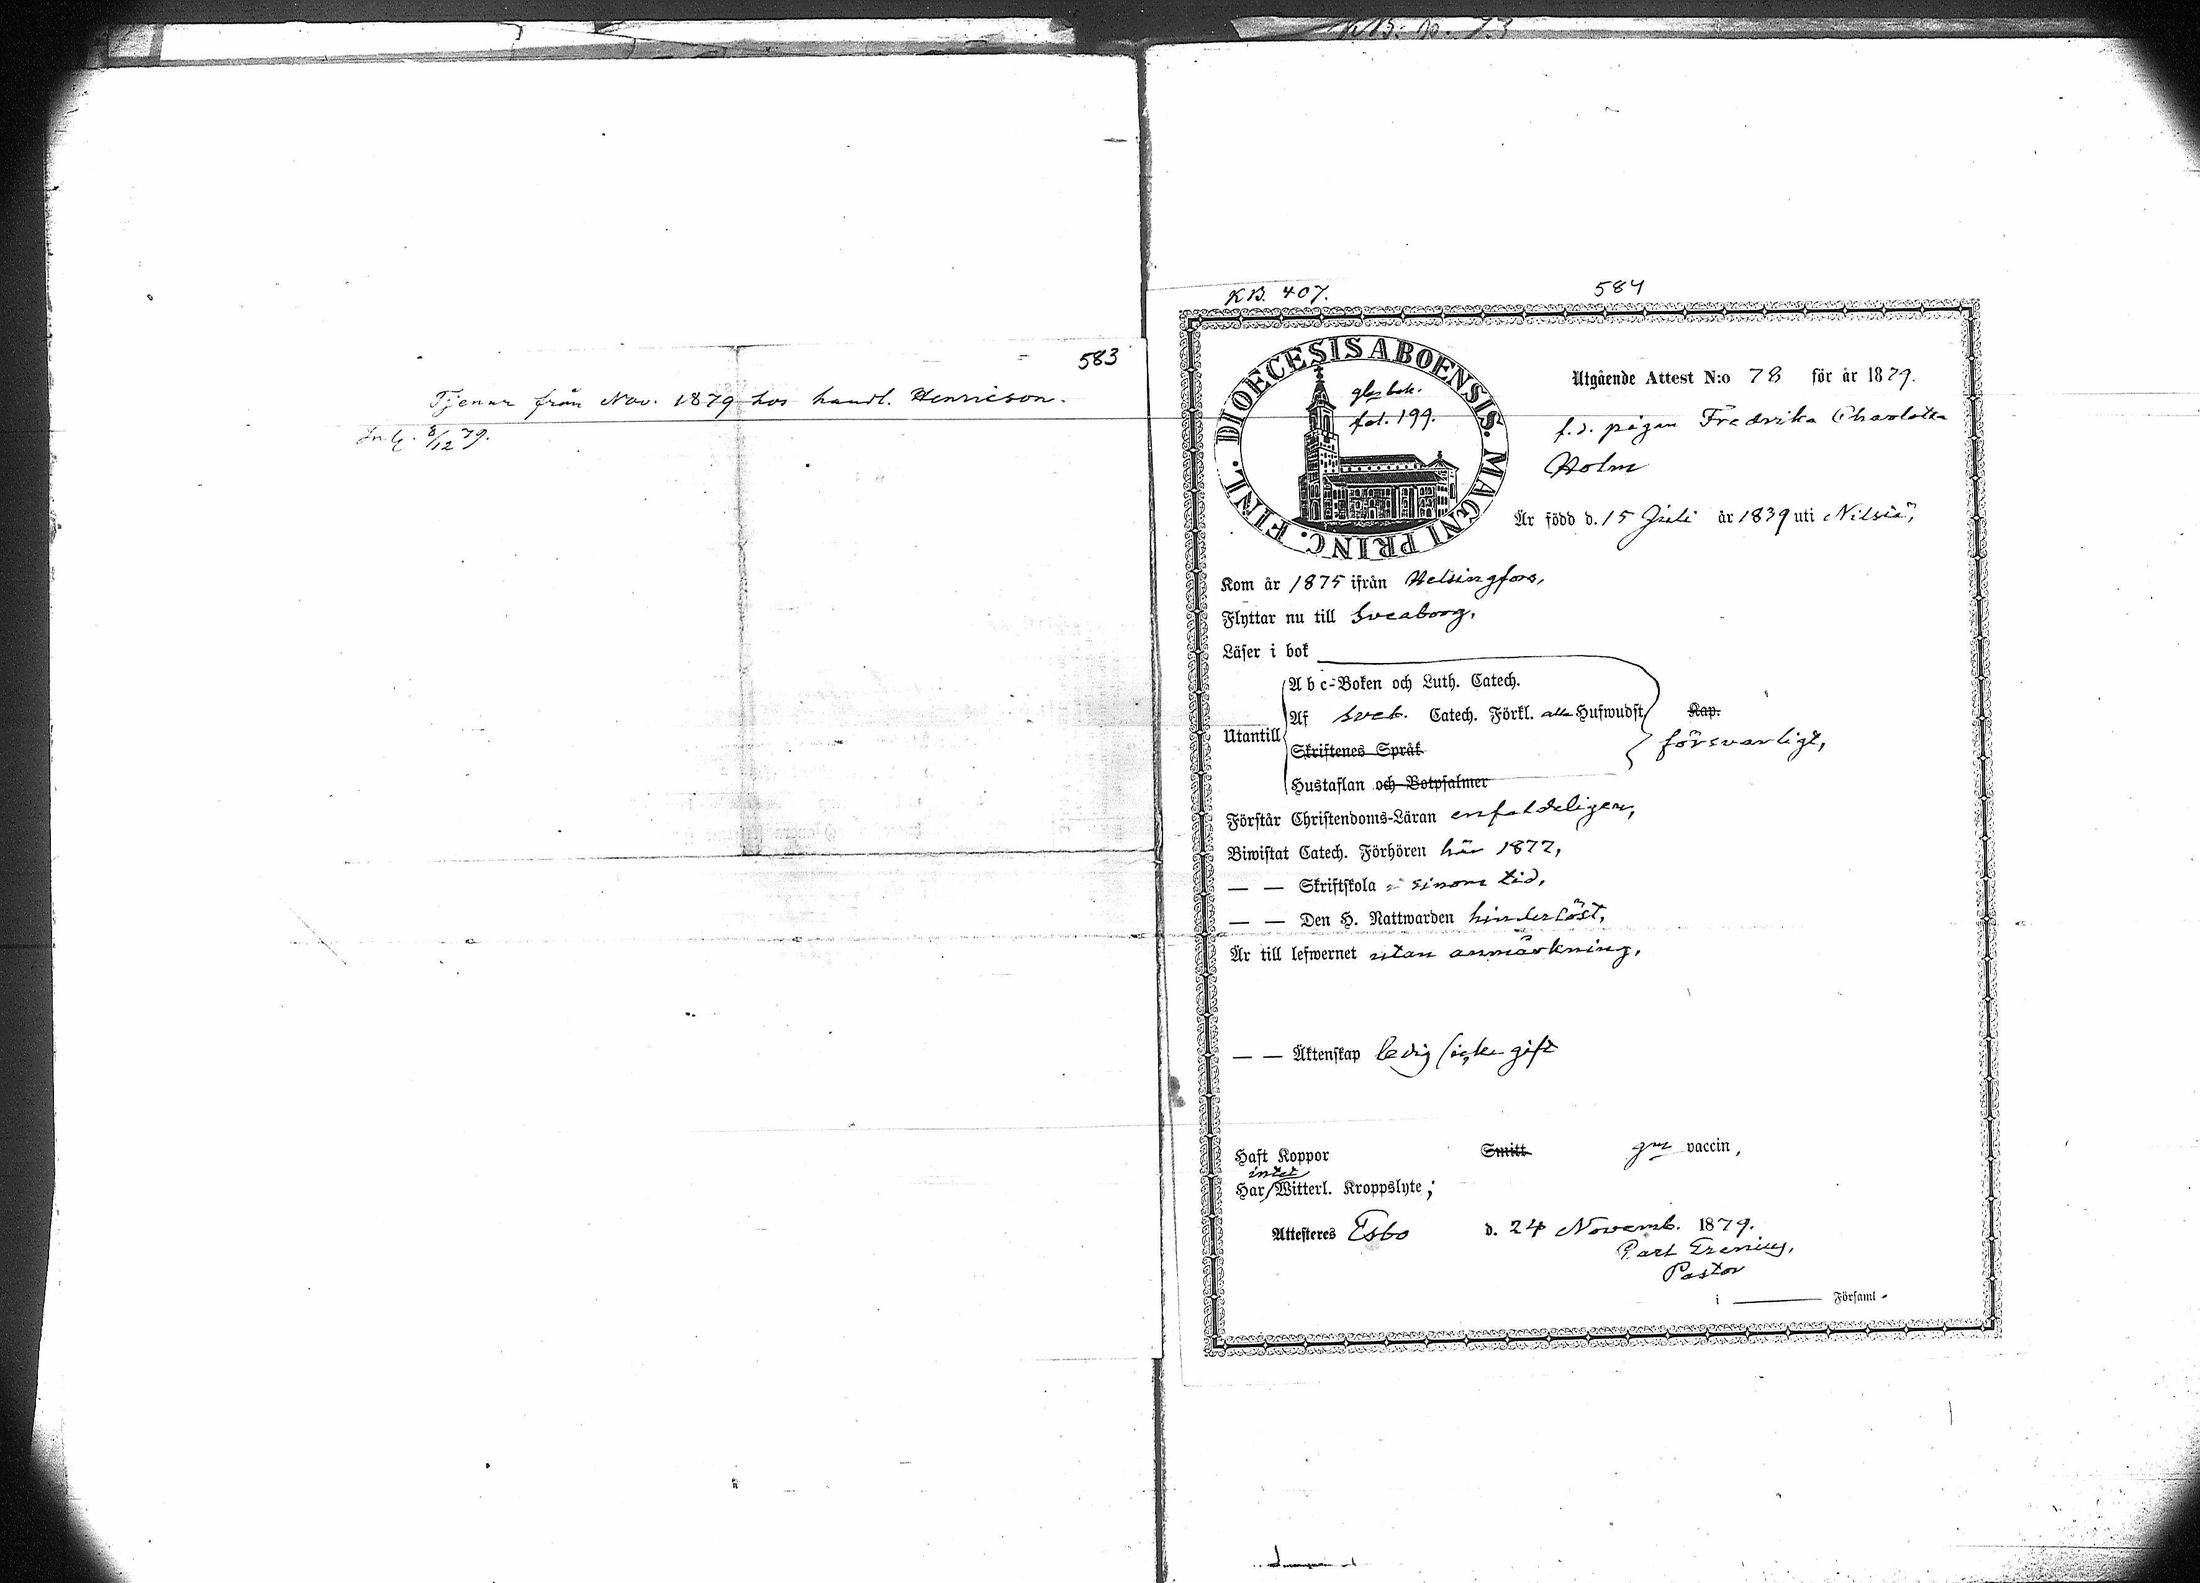 583
Tjenar från Nov. 1879 hos handl. Henricson.
8/12 79.
KB. 407.
584
DIOECESIS ABOENSIS. MAGNI PRINC. FINL.
fol. 199.
Utgående Attest N:o 78 för år 1879.
f.d. pigan Fredrika Charlotta
Holm
Är född d. 15 Juli år 1839 uti Nilsiä,
Kom år 1875 ifrån Helsingfors,
Flyttar nu till Sveaborg,
Läser i bok
Utantill
A b c-Boken och Luth. Catech.
Af Sveb. Catech. Förkl. alla Hufwudst. Kap.
försvarligt,
Skriftenes Språk
Hustaflan och Botpsalmer
Förstår Christendoms-Läran enfaldeligen,
Biwistat Catech. Förhören här 1877,
— — Skriftskola i sinom tid,
— — Den H. Nattwarden hinderlöst,
Är till lefwernet utan anmärkning,
— — Äktenskap ledig (icke gift
Haft Koppor Smitt gm vaccin,
intet
Har/Witterl. Kroppslyte;
Attesteres Esbo d. 24 Novemb. 1879.
Pastor
i — Församl.